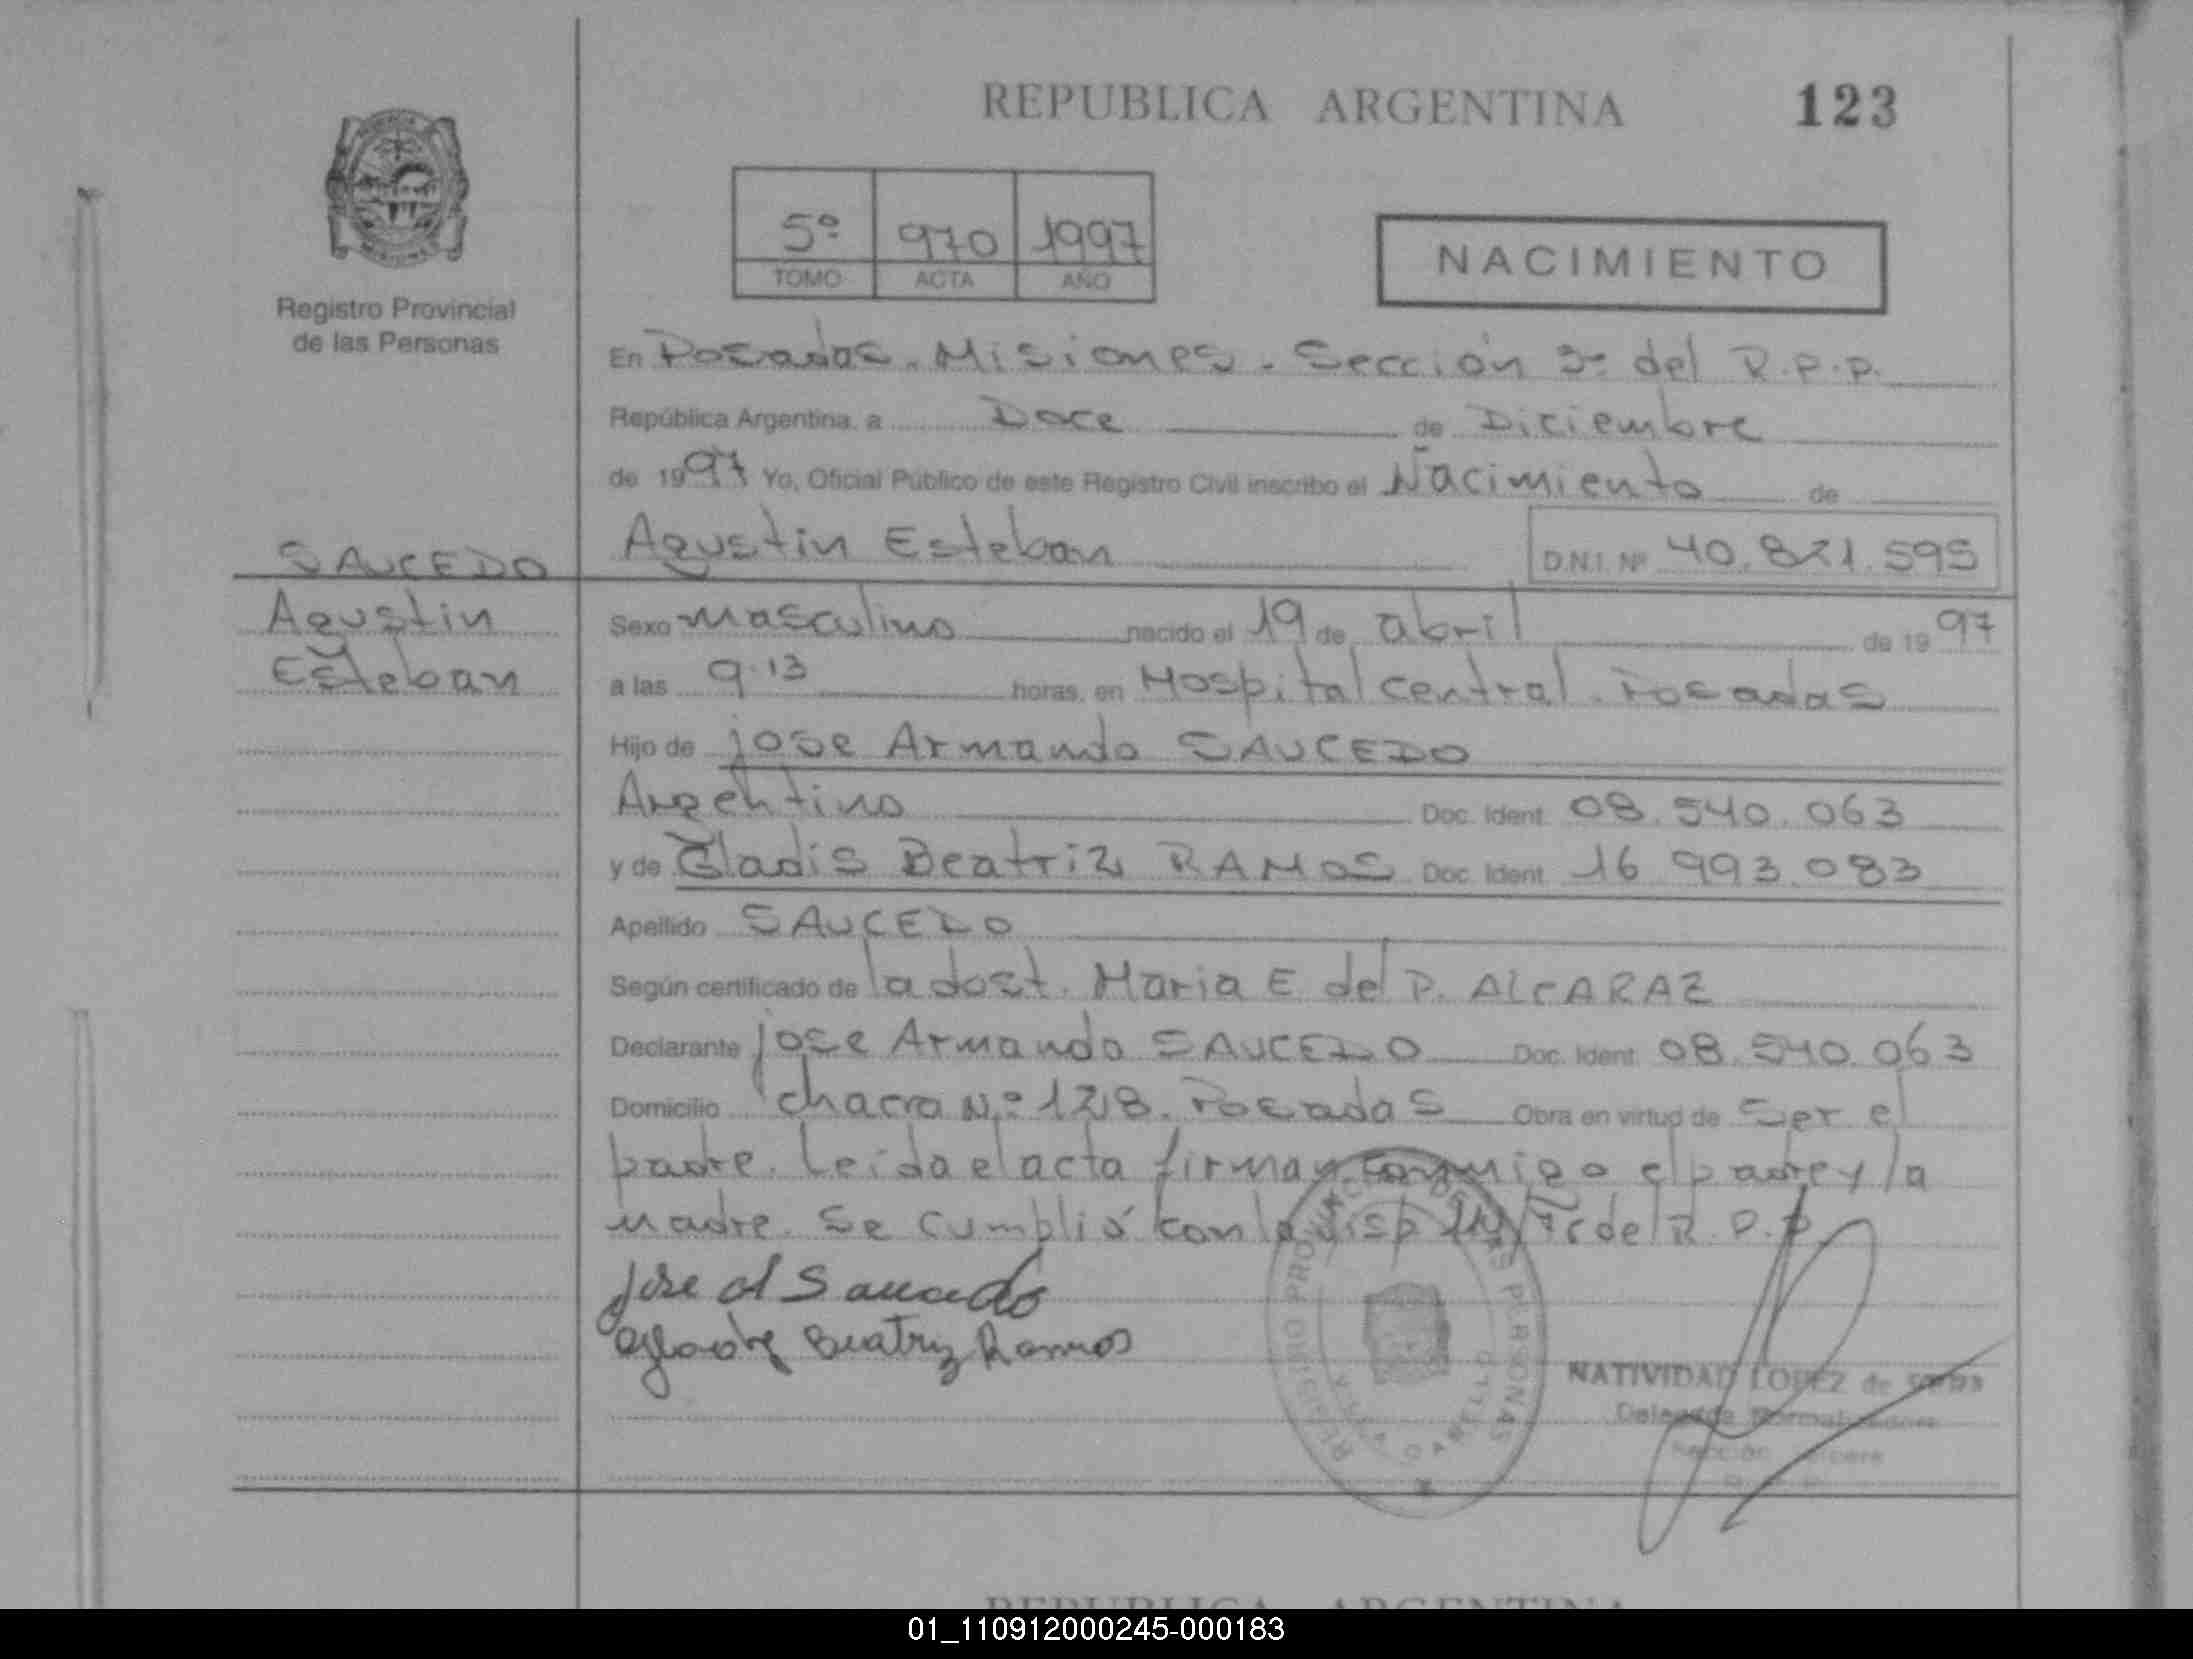 REPUBLICA ARGENTINA 123
5º 970 1997
TOMO ACTA AÑO
NACIMIENTO
Registro Provincial
de las Personas
En Posadas. Misiones. Sección 3ª del R.P.P.
República Argentina, a Doce de Diciembre
de 1997 Yo, Oficial Público de este Registro Civil inscribo el Nacimiento de
SAUCEDO
Agustin
Esteban
Agustin Esteban D.N.I. Nº 40.821.595
Sexo masculino nacido el 19 de abril de 1997
a las 9.13 horas, en Hospital central. Posadas
Hijo de jose Armando SAUCEDO
Argentino Doc. Ident. 08.540.063
y de Gladis Beatriz RAMOS Doc. Ident. 16 993.083
Apellido SAUCEDO
Según certificado de la dost. Maria E del P. ALCARAZ
Declarante jose Armando SAUCEDO Doc. Ident. 08.540.063
Domicilio chacra Nº 128. Posadas Obra en virtud de ser el
padre. Leida el acta firman conmigo el padre y la
madre. Se cumplió con la disp del R.P.P.
Jose A Saucedo
Beatriz Ramos
REGISTRO PROVINCIAL DE LAS PERSONAS
NATIVIDAD LOPEZ de
Delegada Normalizadora
Sección Tercera
REPUBLICA ARGENTINA
01_110912000245-000183